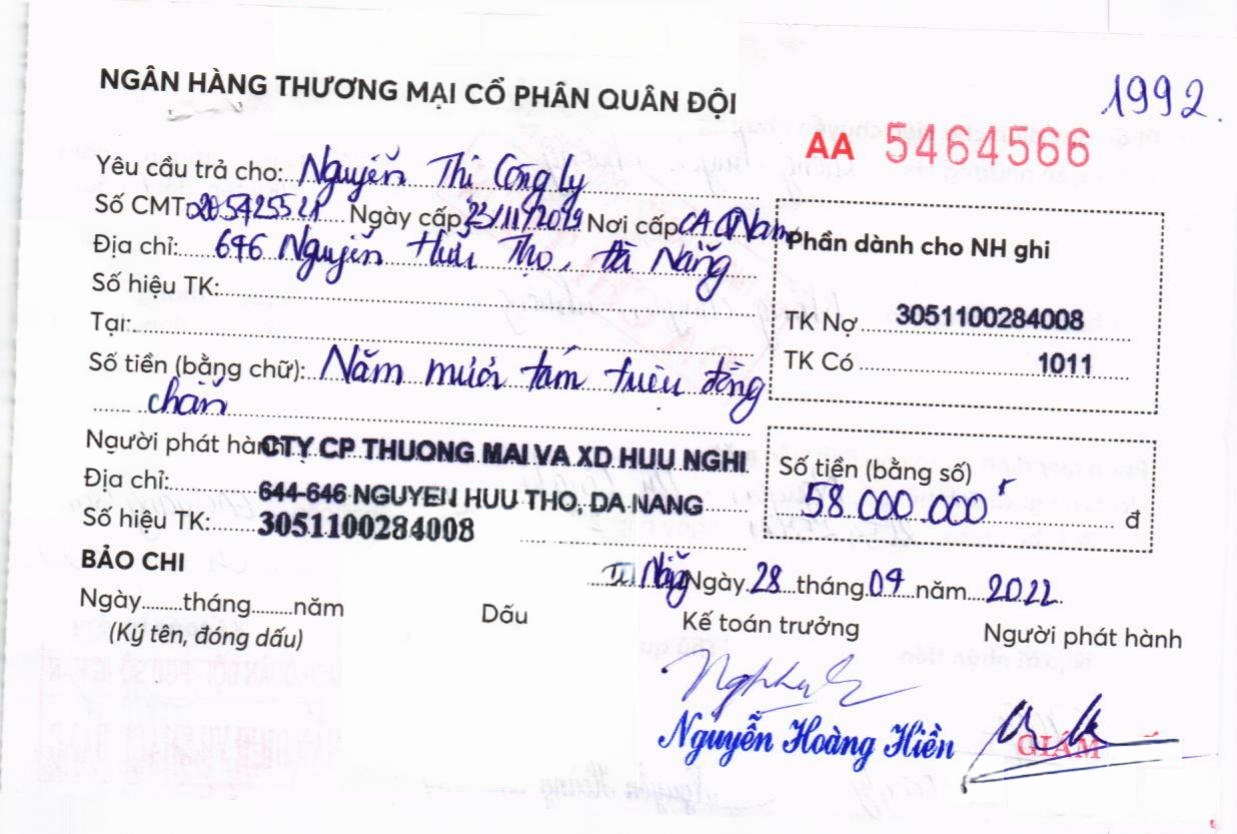 NGÂN HÀNG THƯƠNG MẠI CỔ PHẦN QUÂN ĐỘI
1992.
AA 5464566
Yêu cầu trả cho: Nguyễn Thị Công Ly
Số CMT: 205425521 Ngày cấp 23/11/2019 Nơi cấp CA QNam
Địa chỉ: 646 Nguyễn Hữu Thọ, Đà Nẵng
Số hiệu TK:
Tại:
Phần dành cho NH ghi
TK Nợ 3051100284008
TK Có 1011
Số tiền (bằng chữ): Năm mươi tám triệu đồng
chẵn
Người phát hành CTY CP THUONG MAI VA XD HUU NGHI
Địa chỉ: 644-646 NGUYEN HUU THO, DA NANG
Số hiệu TK: 3051100284008
Số tiền (bằng số)
58.000.000 đ
BẢO CHI
Ngày.........tháng.........năm
(Ký tên, đóng dấu)
Dấu
Nẵng Ngày 28 tháng 04 năm 2022
Kế toán trưởng
Người phát hành
Nguyễn Hoàng Hiền
GIÁM